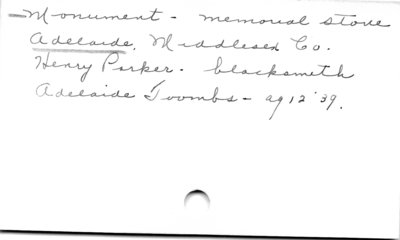 Monument - memorial stone
Adelaide, Middlesex Co.
Henry Parker - blacksmith
Adelaide Toombs - ag 12 '39.